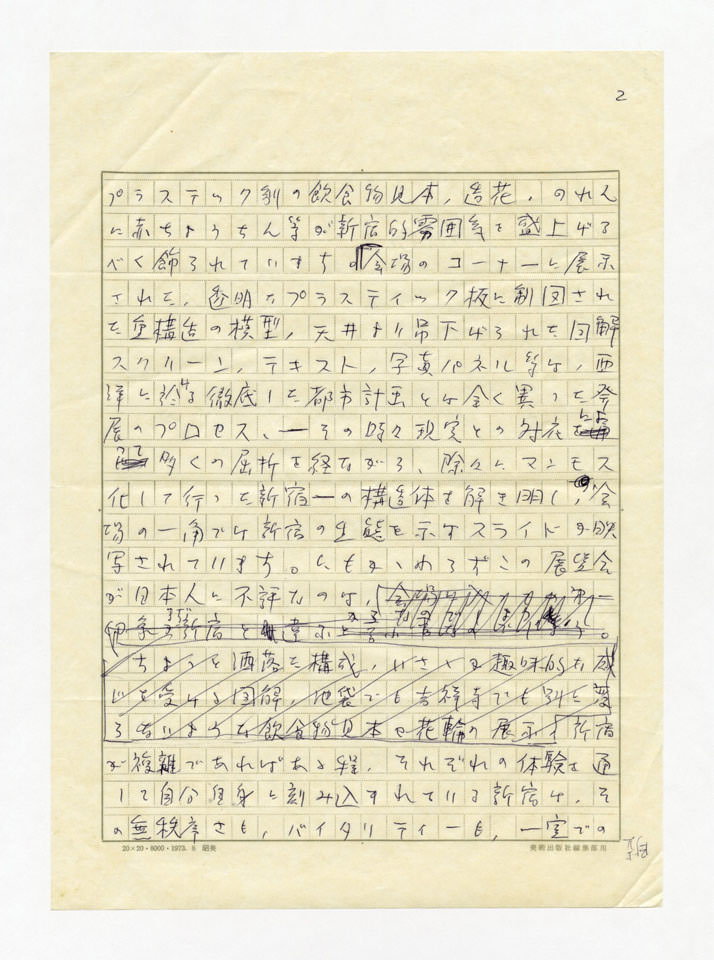 2
プラスティック製の飲食物見本，造花，のれん
に赤ちょうちん等が新宿的雰囲気を盛上げる
べく飾られています。「会場のコーナーに展示
された，透明なプラスティック板に製図され
た空構造の模型，天井より吊下げられた図解
スクリーン，テキスト，写真パネル等は，西
洋に於ける徹底した都市計画とは全く異った発
展のプロセス，一その時々現実との対応による
多くの屈折を経ながら，除々にマンモス
化して行った新宿一の構造体を解き明し，会
場の一角では新宿の生態を示すスライドが映
写されています。にもかかわらずこの展覧会
が日本人に不評なのは，
印象 まず 新宿と
ちょっと洒落た構成，いささか趣味的な感
じを受ける図解，池袋でも吉祥寺でも別に変
らないような飲食物見本や花輪の展示は新宿
が複雑であればある程，それぞれの体験を通
して自分自身に刻み込まれている新宿は，そ
の無秩序さも，バイタリティーも，一室での
20×20・8000・1973. 8 昭美 美術出版社編集部用